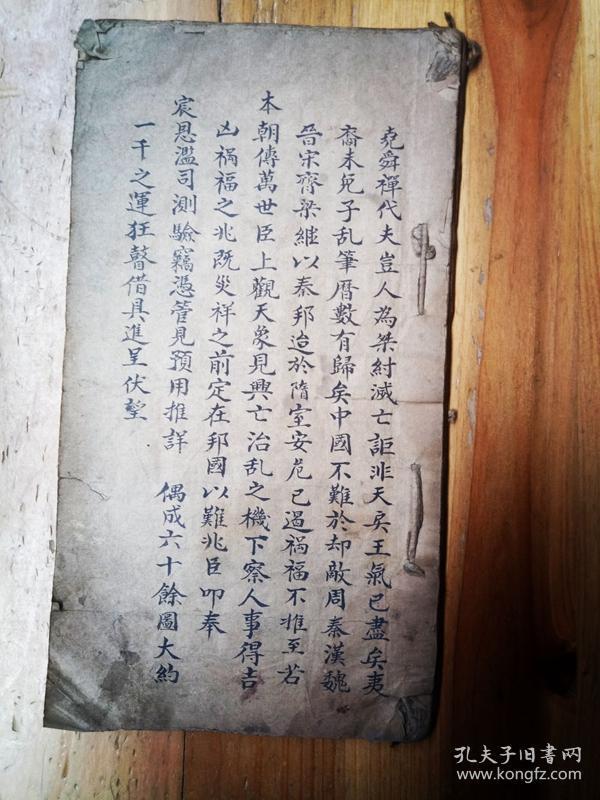 堯舜禪代夫豈人為桀紂滅亡詎非天戾王氣已盡矣夷
裔未免子乱筆曆數有歸矣中國不難於却敵周秦漢魏
晉宋齊梁継以秦邦迨於隋室安危已過祸福不惟至若
本朝傳萬世臣上觀天象見興亡治乱之機下察人事得吉
凶祸福之兆既災祥之前定在邦國以難兆臣叩奉
宸恩濫司測驗竊憑管見預用推詳 偶成六十餘圖大約
一千之運狂瞽借具進呈伏望
孔夫子旧書网
www.kongfz.com